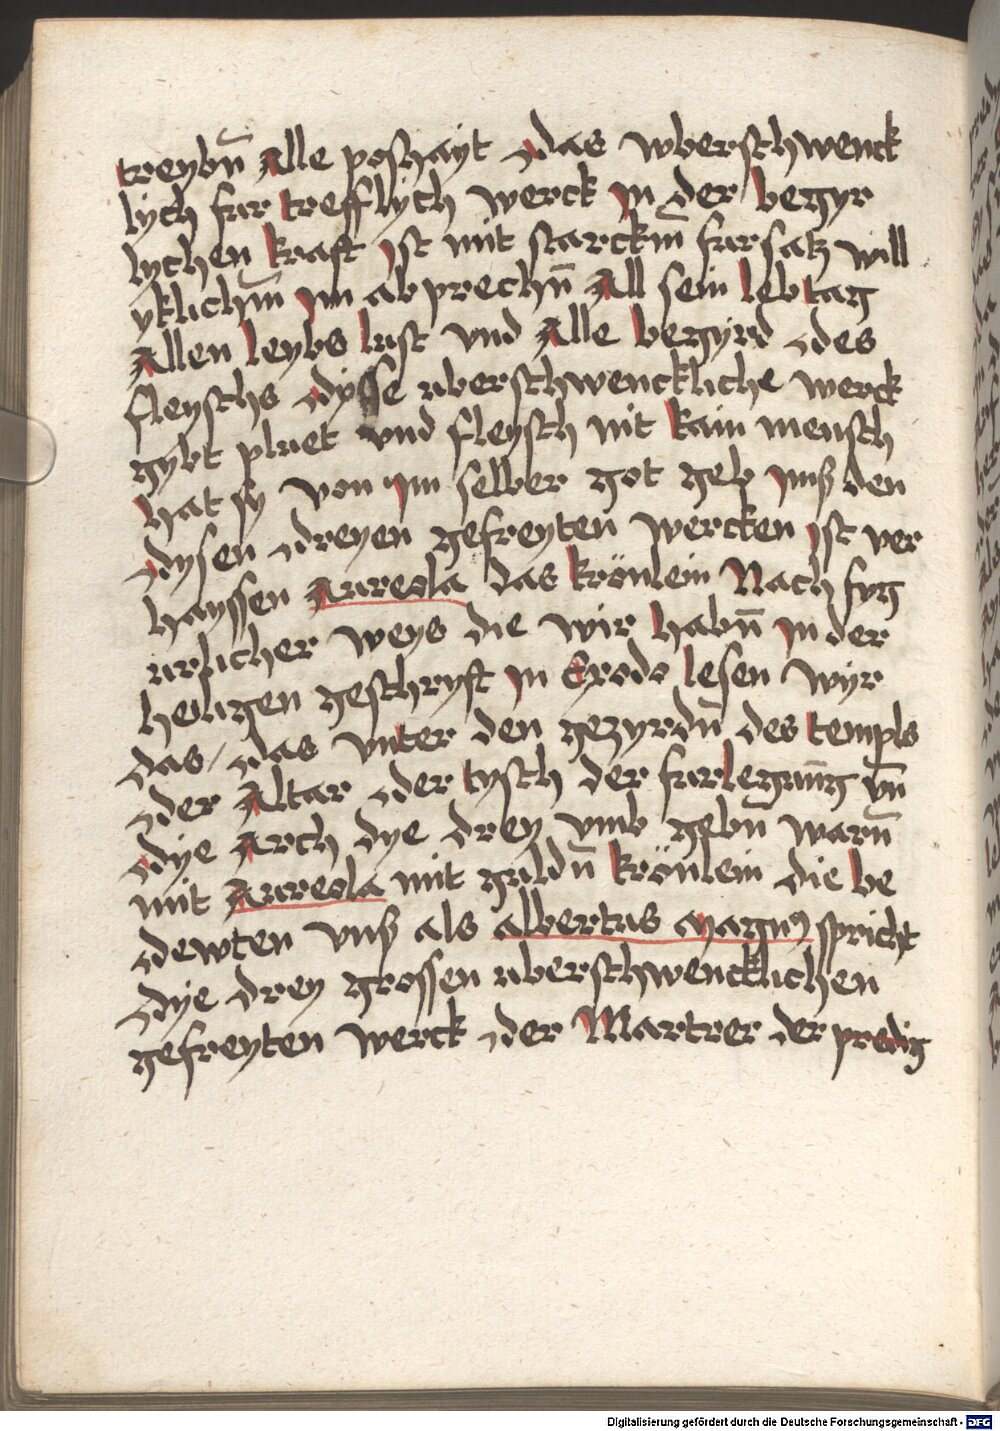 treybn̄ Alle poshayt das wberschwenck
lych fur trefflych werck jn der begyr
lychen kraft jst mit starckm̄ fursatz will
yklichm̄ jm ab prechn̄ All sein lebtag
Allen leybs lust vnd Alle begyrd des
fleyschs dysse uberschwenckliche werck
gybt pluet vnd fleysch nit kain mensch
hat sy von jm selber got geb jmß den
dysen dreyen gefreyten wercken jst ver
hayssen Aureola das krönlein Nach fyg
urlicher weys die wir habn̄ jn der
heiligen geschryft jn Exodo lesen wyr
das / das vnter den gezyrdn̄ des templs
der Altar der tysch der furlegūng vn̄
dye Arch dye drey vmb gebn̄ warn̄
mit Aureola mit guldn̄ krönlein die be
dewten vnß als albertus magnꝰ spricht
dye drey grossen uberschwencklichen
gefreyten werck der Martrer der predig
Digitalisierung gefördert durch die Deutsche Forschungsgemeinschaft - DFG